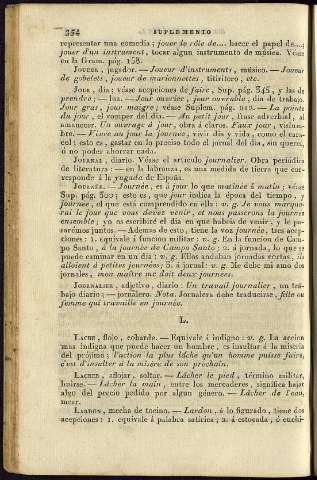 354 SUPLEMENTO
representar una comedia; jouer le rôle de... hacer el papel de...;
jouer d'un instrument, tocar algun instrumento de música. Véase
en la Gram. pág. 158.
JOUEUR, jugador. — Joueur d'instruments, músico. — Joueur
de gobelets, joueur de marionnettes, titiritero, etc.
JOUR, dia; véase acepciones de faire, Sup. pág. 345, y las de
prendre; — luz. — Jour ouvrier, jour ouvrable, dia de trabajo.
Jour gras, jour maigre; véase Suplem. pág. — La pointe
du jour, el romper del dia. — Au petit jour, frase adverbial, al
amanecer. Un ouvrage à jour, obra á claros. Faux jour, vislum-
bre. — Vivre au jour la journée, vivir dia y vida, como el cara-
col; esto es, gastar en lo preciso todo el jornal del dia, sin querer,
ó no poder ahorrar nada.
JOURNAL, diario. Véase el artículo journalier. Obra periódica
de literatura: — en la labranza, es una medida de tierra que cor-
responde á la yugada de España.
JOURNÉE. — Journée, es á jour lo que matinée á matin; véase
Sup. pág. 300; esto es, que jour indica la época del tiempo, y
journée, al que está comprendido en ella: v. g. Je vous marque-
rai le jour que vous devez venir, et nous passerons la journée
ensemble; yo os escribiré el dia en que habeis de venir, y le pa-
sarémos juntos. — Ademas de esto, tiene la voz journée, tres acep-
ciones: 1. equivale á funcion militar: v. g. En la funcion de Cam-
po Santo, à la journée de Campo Santo; 2. á jornada, lo que se
puede caminar en un dia: v. g. Ellos andaban jornadas cortas, ils
alloient à petites journées; 3. á jornal: v. g. Me debe mi amo dos
jornales, mon maître me doit deux journées.
JOURNALIER, adjetivo, diario: Un travail journalier, un tra-
bajo diario; — jornalero. Nota. Jornalera debe traducirse, fille ou
femme qui travaille en journée.
L.
LACHE, flojo, cobarde. — Equivale á indigno: v. g. La accion
mas indigna que puede hacer un hombre, es insultar á la miseria
del prójimo; l'action la plus lâche qu'un homme puisse faire,
c'est d'insulter à la misère de son prochain.
LACHER, aflojar, soltar. — Lâcher le pied, término militar,
huirse. — Lâcher la main, entre los mercaderes, significa bajar
algo del precio pedido por algun género. — Lâcher de l'eau,
mear.
LARDON, mecha de tocino. — Lardon, á lo figurado, tiene dos
acepciones: 1. equivale á palabra satírica; 2. á estocada, ó cuchi-